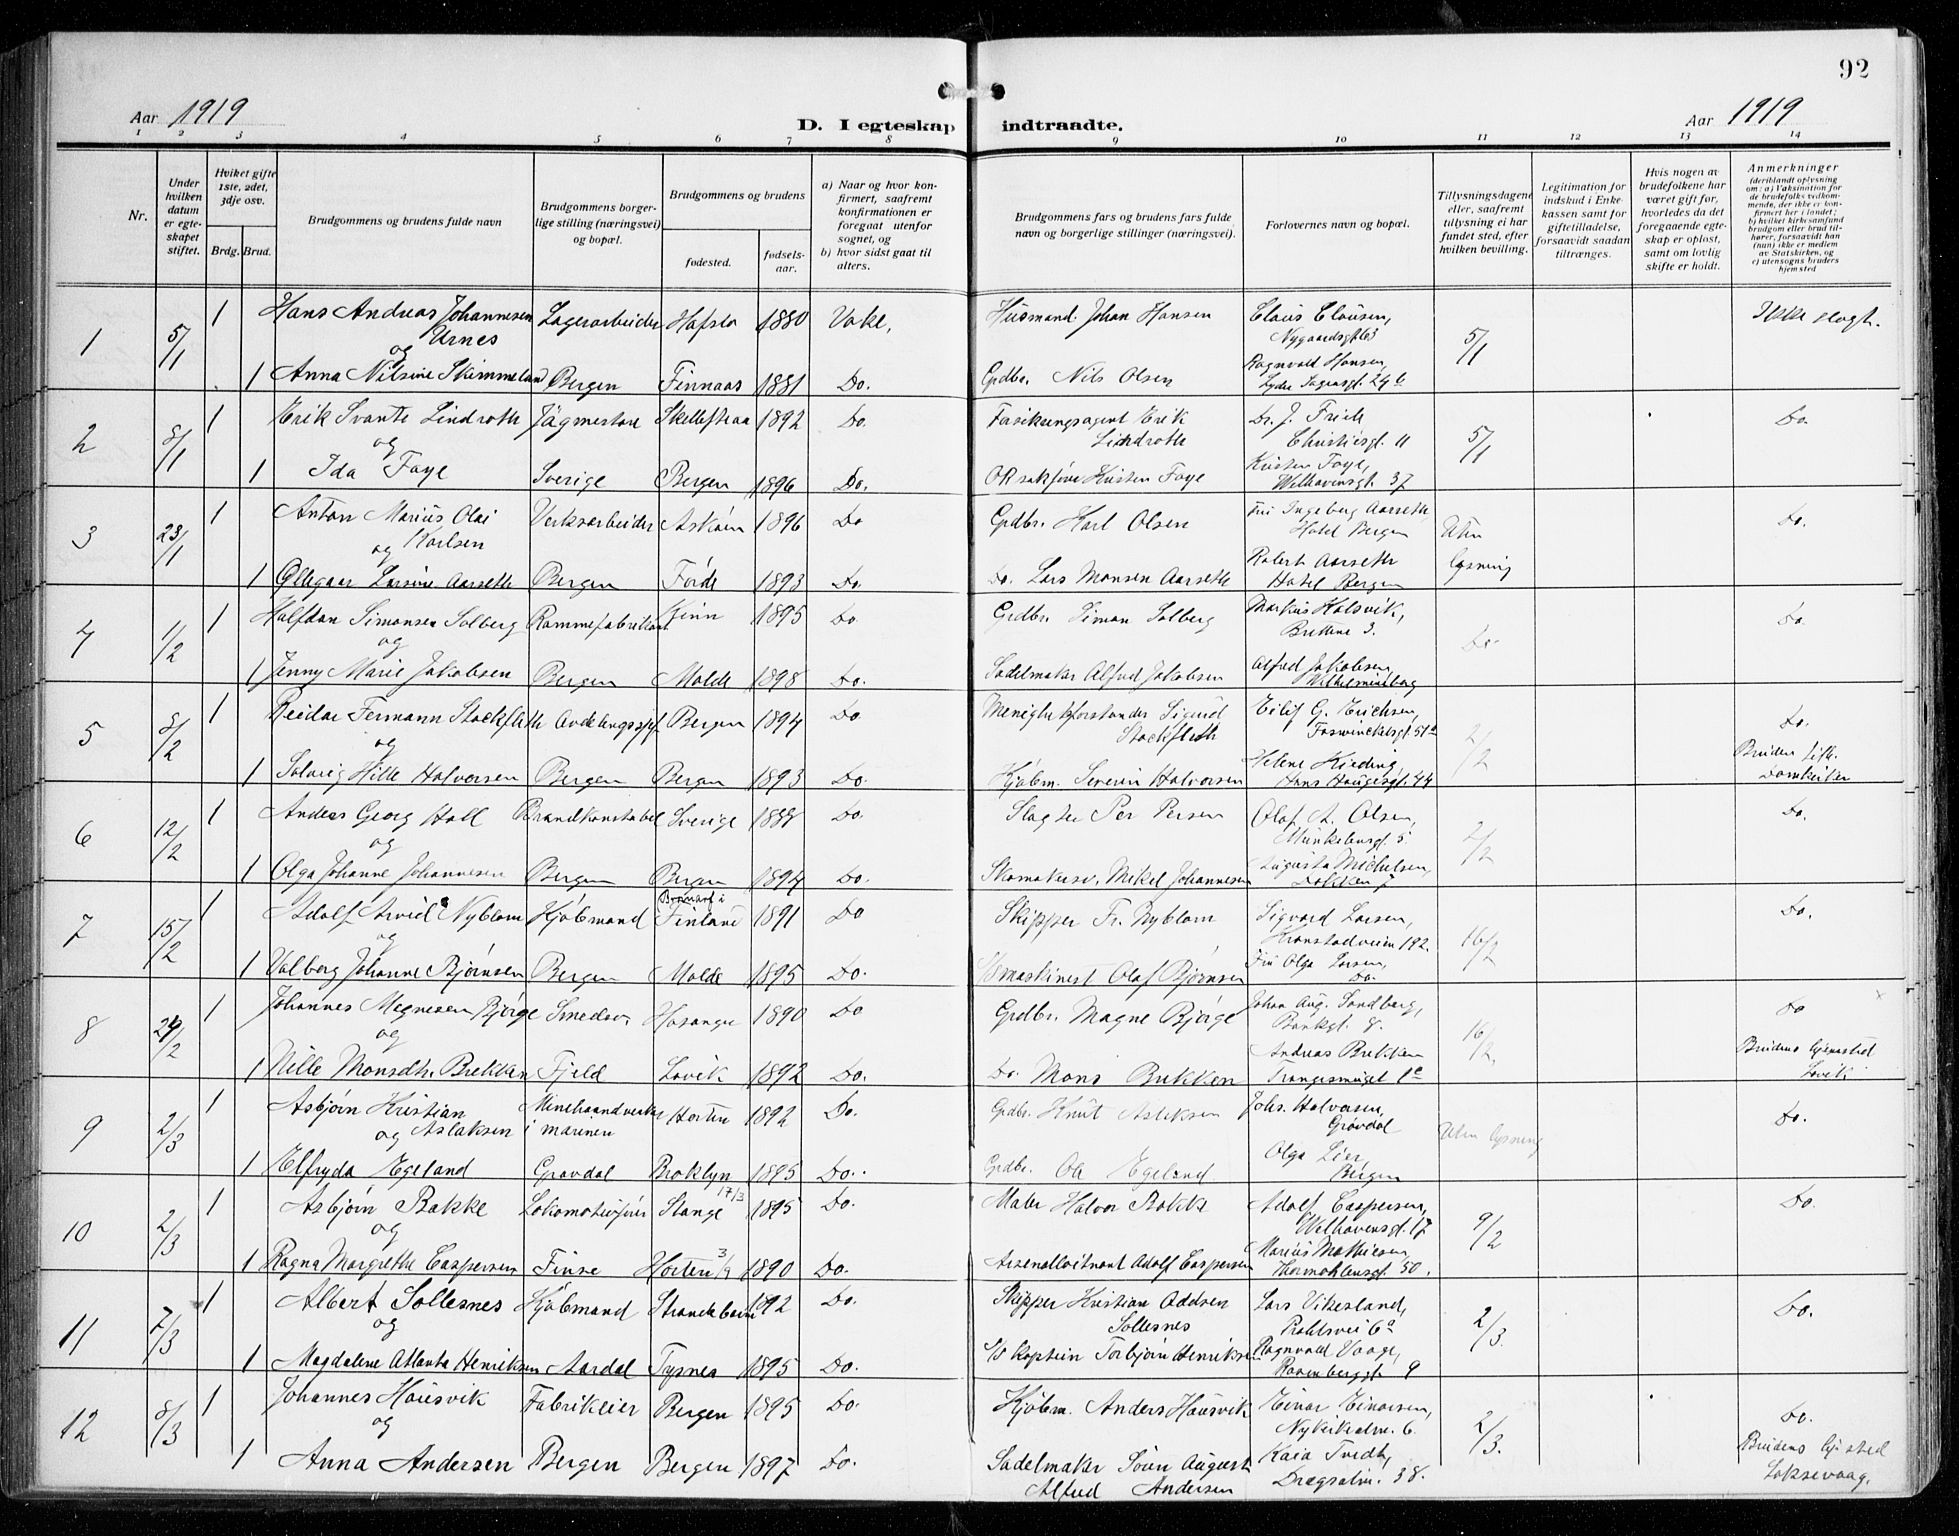 92
Aar 1919
D. I egteskap indtraadte.
Aar 1919
1 2 3 4 5 6 7 8 9 10 11 12 13 14
Nr.
Under hvilken datum er egteskapet stiftet.
Hvilket gifte 1ste, 2det, 3dje osv.
Brdg. Brud.
Brudgommens og brudens fulde navn
Brudgommens borgerlige stilling (næringsvei) og bopæl.
Brudgommens og brudens
fødested.
fødselsaar.
a) Naar og hvor konfirmert, saafremt konfirmationen er foregaat utenfor sognet, og
b) hvor sidst gaat til alters.
Brudgommens fars og brudens fars fulde navn og borgerlige stillinger (næringsvei).
Forlovernes navn og bopæl.
Tillysningsdagene eller, saafremt tillysning ei har fundet sted, efter hvilken bevilling.
Legitimation for indskud i Enkekassen samt for giftetilladelse, forsaavidt saadan tiltrænges.
Hvis nogen av brudefolkene har været gift før, hvorledes da det foregaaende egteskap er opløst, samt om lovlig skifte er holdt.
Anmerkninger (deriblandt oplysning om: a) Vaksination for de brudefolks vedkommende, der ikke er konfirmert her i landet; b) hvilket kirkesamfund brudgom eller brud tilhører, forsaavidt han (hun) ikke er medlem av Statskirken, og c) utensogns bruders hjemsted
1 5/1 1 Hans Andreas Johannesen Urnes Lagerarbeider Hafslo 1880 Husmand Johan Hansen Claus Clausen, Nygaardsgt 63 5/1
og
1 Anna Nilsine Skimmeland Bergen Finnaas 1881 Do. Grdbr. Nils Olsen Ragnvald Hansen,
2 8/1 1 Erik Svante Lindroth Jägmestare Skellefteaa 1892 Do. Erik Lindroth Dr. J. Friele Christiesgt. 11 5/1 Do.
og
1 Ida Faye Sverige Bergen 1896 Do. Kristen Faye Kristen Faye, Welhavensgt. 37
3 23/1 1 Anton Marius Olai Karlsen Verksarbeider Askøen 1896 Do Grdbr. Karl Olsen Ingeborg Aarseth, Hotel Bergen Uten lysning Do.
og
1 Ollegaar Larsine Aarseth Bergen Førde 1893 Do. Do. Lars Monsen Aarseth Robert Aarseth Hotel Bergen
4 1/2 1 Halfdan Simonsen Solberg Rammefabrikant Kinn 1895 Do Grdbr. Simon Solberg Markus Halsvik, 3. Do Do.
og
1 Jenny Marie Jakobsen Bergen Molde 1898 Do. Sadelmaker Alfred Jakobsen Alfred Jakobsen, Wilhelmineborg
5 8/2 1 Reidar Fermann Stockfleth Avdelingschef Bergen 1894 Do Menighetsforstander Sigurd Stockfleth Eilif G. Erichsen, Foswinckelsgt. 51a 2/2 Do.
og
1 Solveig Hille Halvorsen Bergen Bergen 1893 Do. Kjøbm. Severin Halvorsen Helene Kieding, Hans Haugesgt. 44
6 12/2 1 Anders Georg Hall Brandkonstabel Sverige Do. Slagter Per Persen Olaf A. Olsen, Munkebergt. 5 2/2 Do.
og
1 Olga Johanne Johannesen Bergen Bergen 1894 Do. Skomakersv. Mikel Johannesen Augusta Michelsen, Dokken 7
7 15/2 1 Adolf Arvid Nyblom Kjøbmand Finland 1891 Do Skipper Fr. Nyblom Sigvard Larsen, Kronstadveien 192. 16/2 Do.
og
1 Valborg Johanne Bjørnsen Bergen Molde 1895 Do. maskinist Olaf Bjørnsen Olga Larsen, Do.
8 1 Johannes Magnesen Bjørge Smedsv. Hosanger 1890 Do Grdbr. Magne Bjørge Johan Aug. Sandberg, Bankgt. 8. 16/2. Do
og
1 Nille Monsdtr. Brekken Fjeld Lavik 1892 Do. Do. Mons Brekken Andreas Brekken Brudens hjemsted Lavik
9 2/3 1 Asbjørn Kristian Aslaksen Minehaandverker i marinen Horten 1892 Do. Grdbr. Knut Aslaksen Johs. Halvorsen, Gravdal Uten lysning Do.
og
1 Elfryda Egeland Gravdal Broklyn 1895 Do. Grdbr. Ole Egeland Olga Lier, Bergen
10 2/3 1 Asbjørn Bakke Lokomotivfører Stange 17/3 1895 Do. Maler Halvor Bakke Adolf Caspersen, Welhavensgt. 17 9/2 Do.
og
1 Ragna Margrethe Caspersen Finse Horten 3/9 1890 Do. Arsenalløitnant Adolf Caspersen Marius Mathiesen, Thormøhlensgt. 50.
11 7/3 1 Albert Sollesnes Kjøbmand Strandebarm 1892 Do. Skipper Kristian Oddsen Sollesnes Lars Vikesland, 6a 2/3. Do.
og
1 Magdalene Atlanta Henriksen Aardal Tysnes 1895 Do. S/S kaptein Torbjørn Henriksen Ragnvald Vaage, 9
12 8/3 1 Johannes Hausvik Fabrikeier Bergen 1895 Do. Kjøbm. Anders Hausvik Einar Einarsen, Nykirkealm. 6. 2/3. Do.
og
1 Anna Andersen Bergen Bergen 1897 Do. Sadelmaker Søren August Alfred Andersen Kaia Tvedt, Drægsalm. 38. Brudens hjemsted Laksevaag.